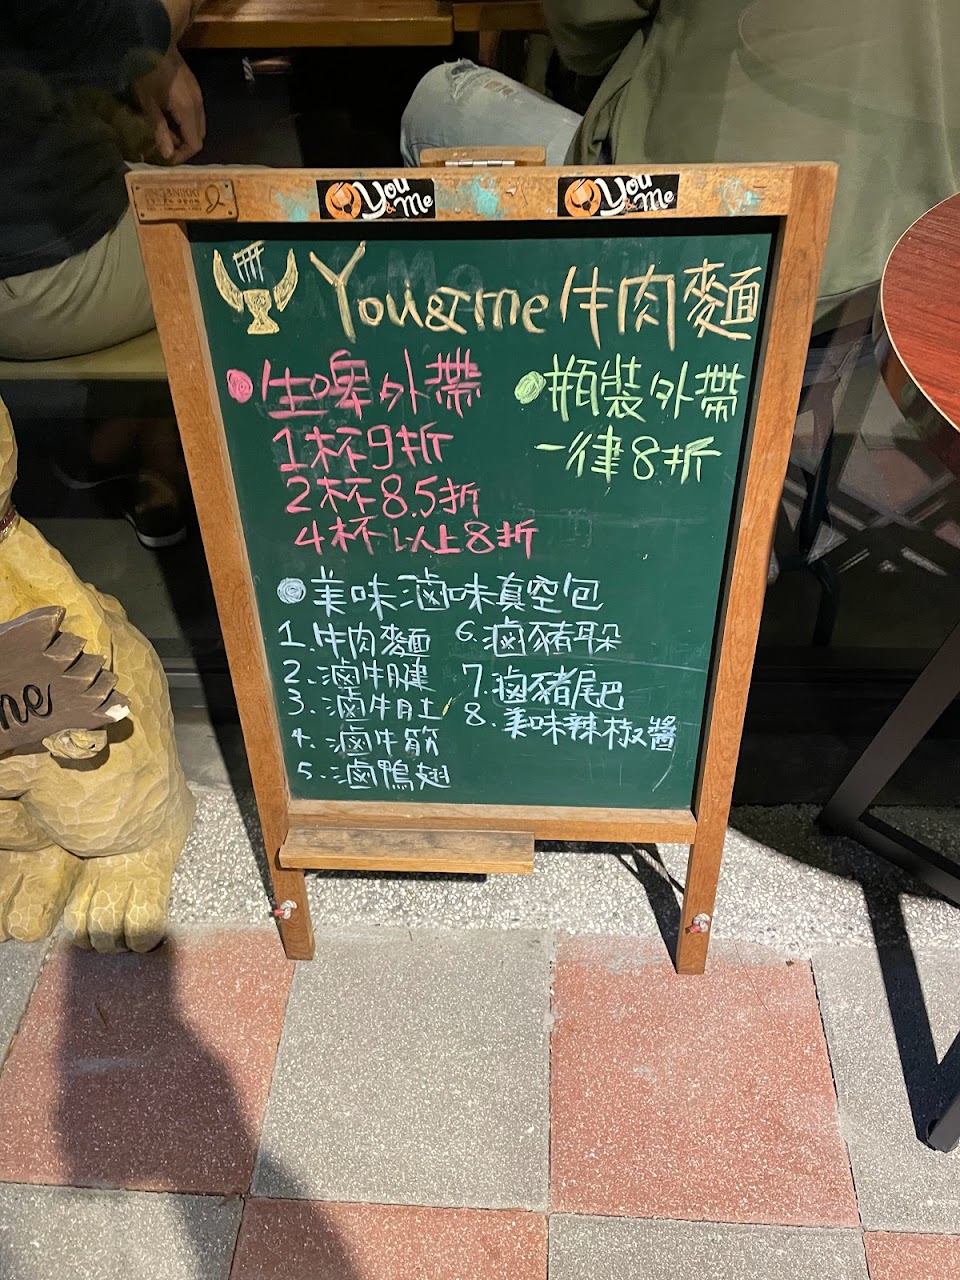 You & Me
You & Me
You&me 牛肉麵
生啤外帶
1杯9折
2杯8.5折
4杯以上8折
瓶裝外帶
一律8折
美味滷味真空包
1.牛肉麵
2.滷牛腱
3.滷牛肚
4.滷牛筋
5.滷鴨翅
6.滷豬耳朵
7.滷豬尾巴
8.美味辣椒醬
me